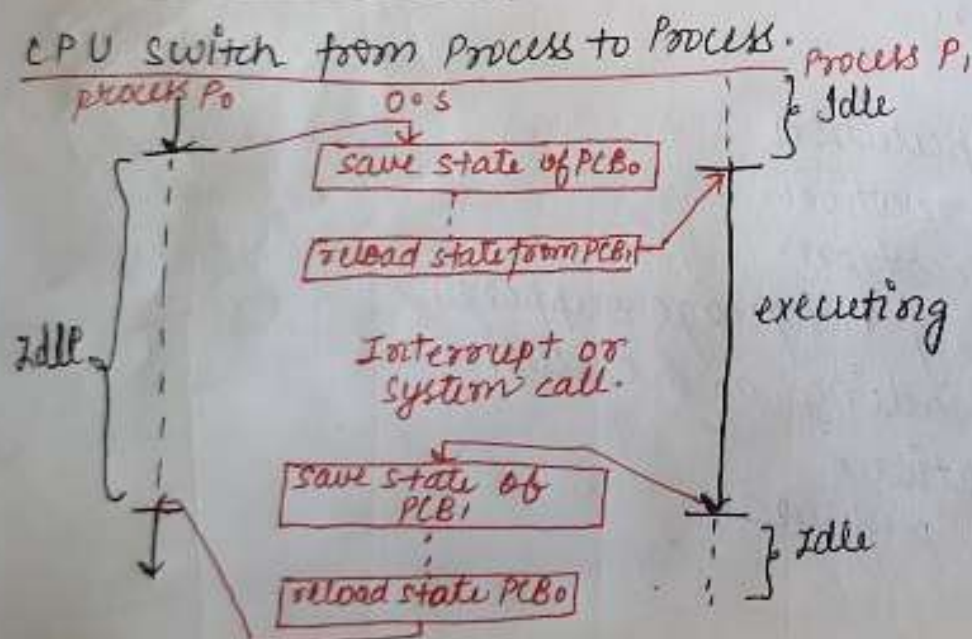 CPU switch from Process to Process.
process P₀
O.S
Process P₁
Idle
save state of PCB₀
reload state from PCB₁
executing
Idle
Interrupt or
system call.
save state of
PCB₁
Idle
reload state PCB₀